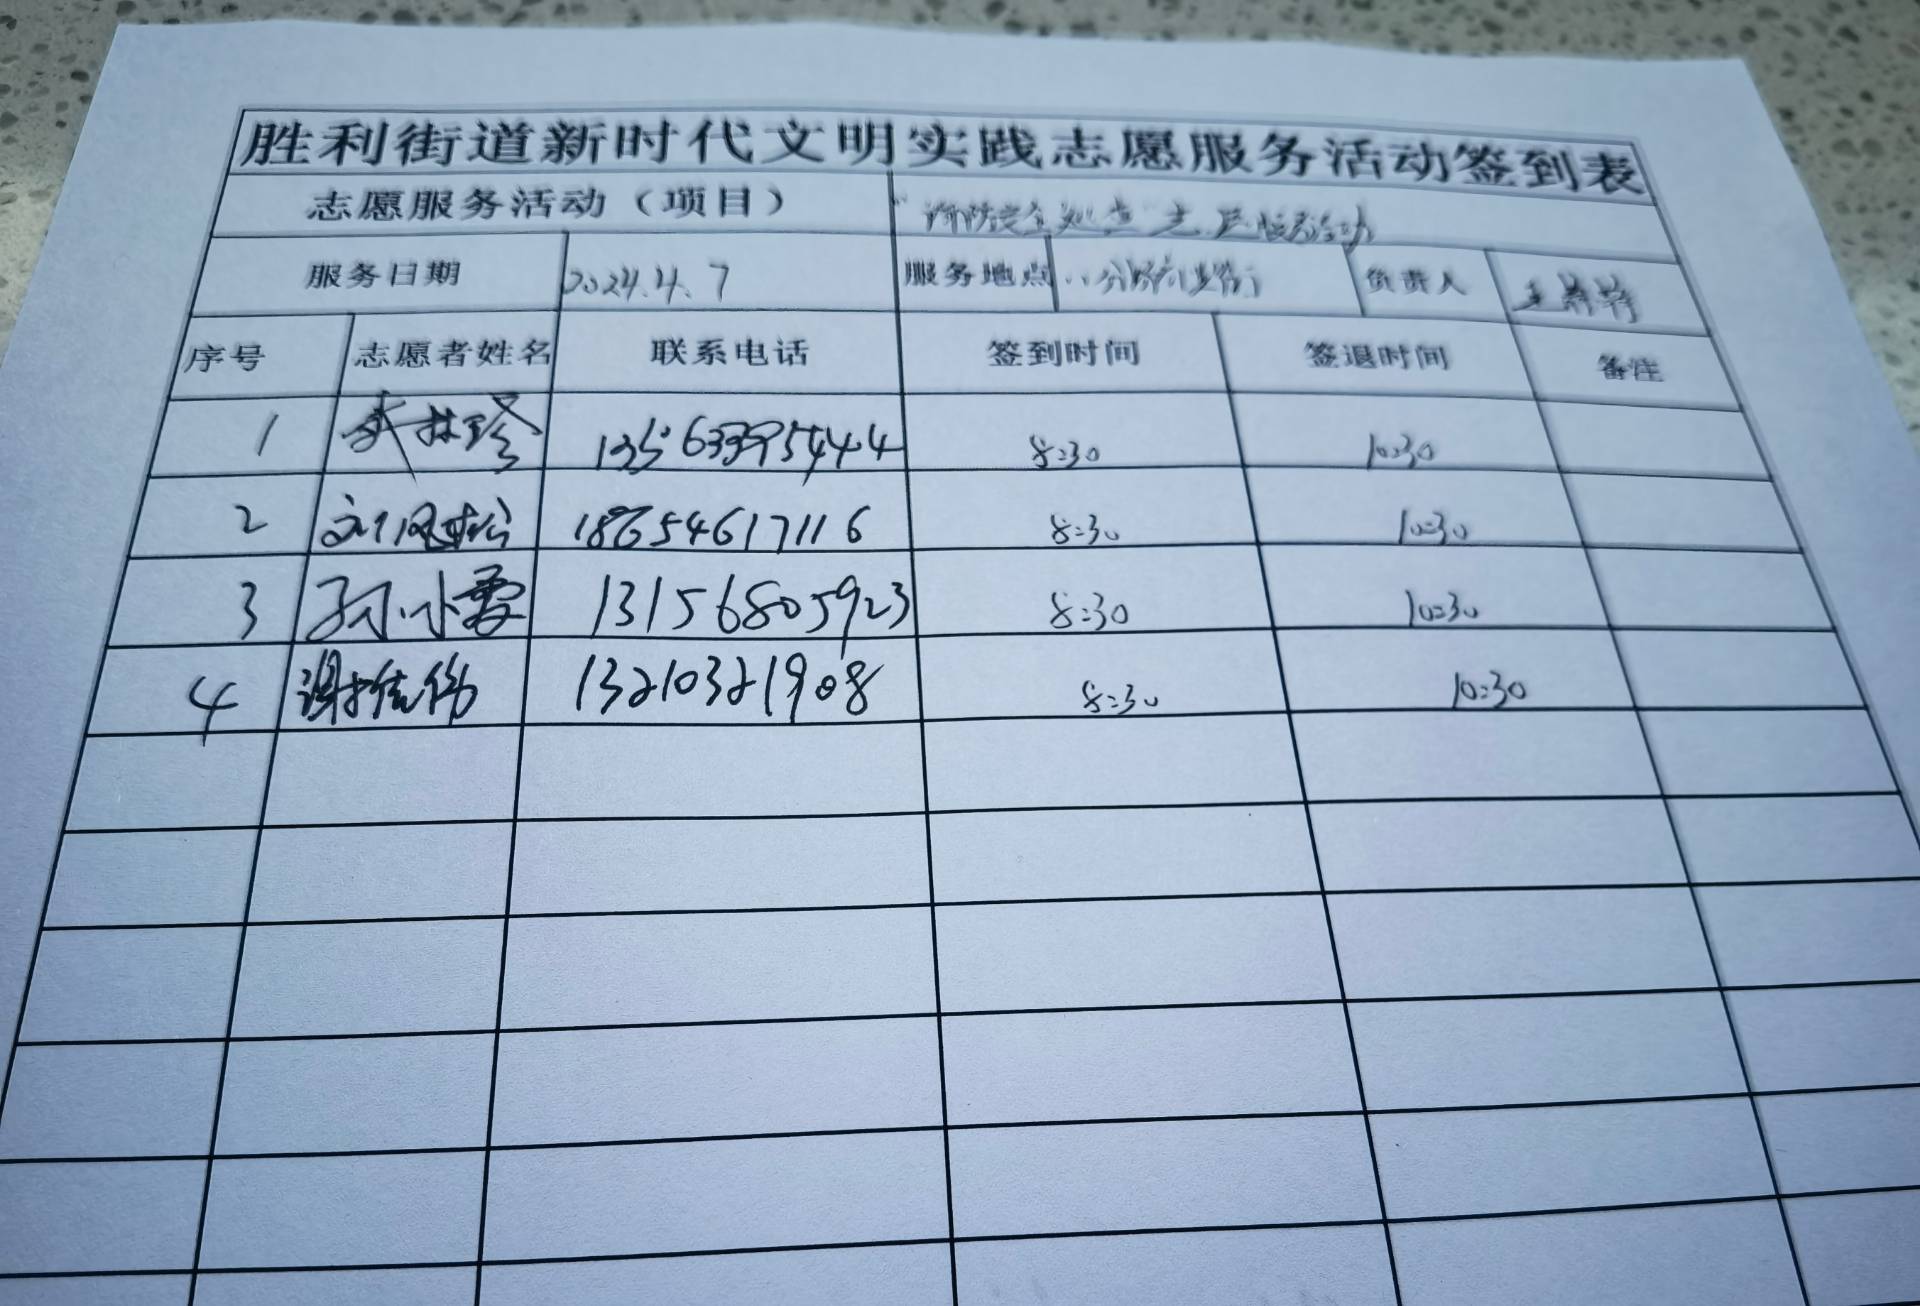 胜利街道新时代文明实践志愿服务活动签到表
志愿服务活动（项目） 消防安全 志愿服务活动
服务日期 2024.4.7 服务地点 负责人
序号 志愿者姓名 联系电话 签到时间 签退时间 备注
1 8:30 10:30
2 18654617116 8:30 10:30
3 孙小雪 13156805923 8:30 10:30
4 13210321908 8:30 10:30